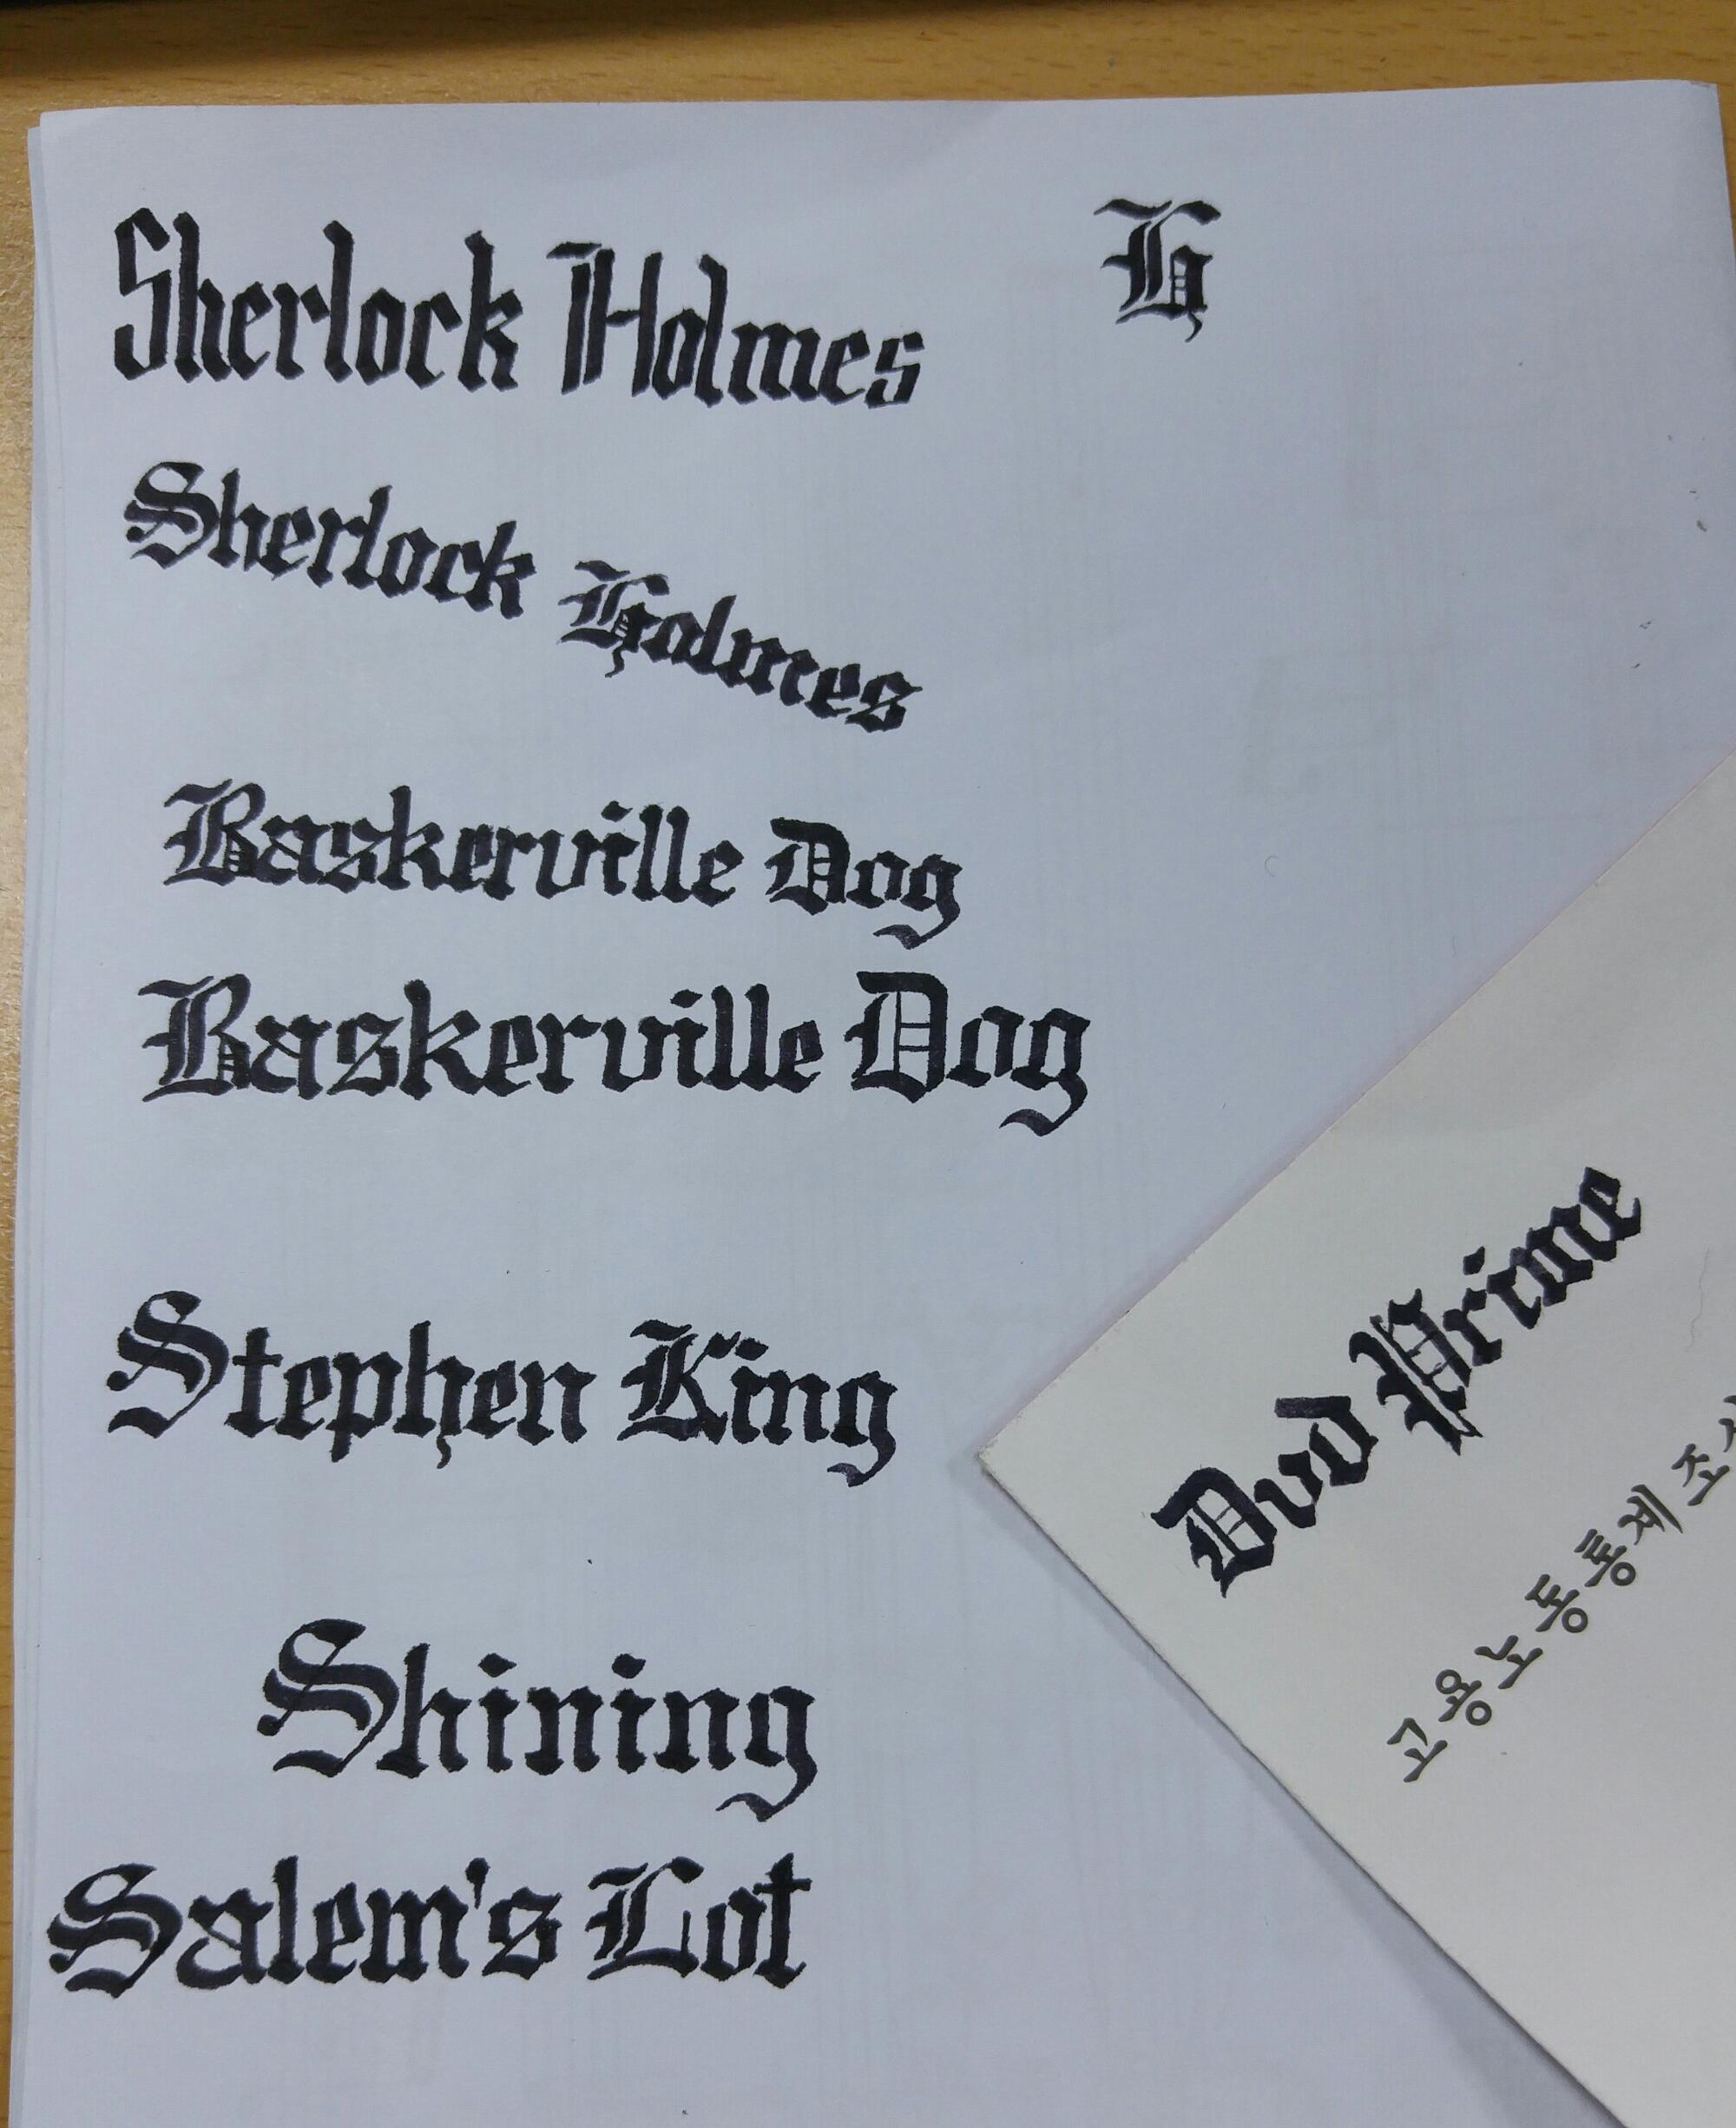 Sherlock Holmes
H
Sherlock Holmes
Baskerville Dog
Baskerville Dog
Stephen King
Shining
Salem's Lot
Dvd Prime
고용노동통제